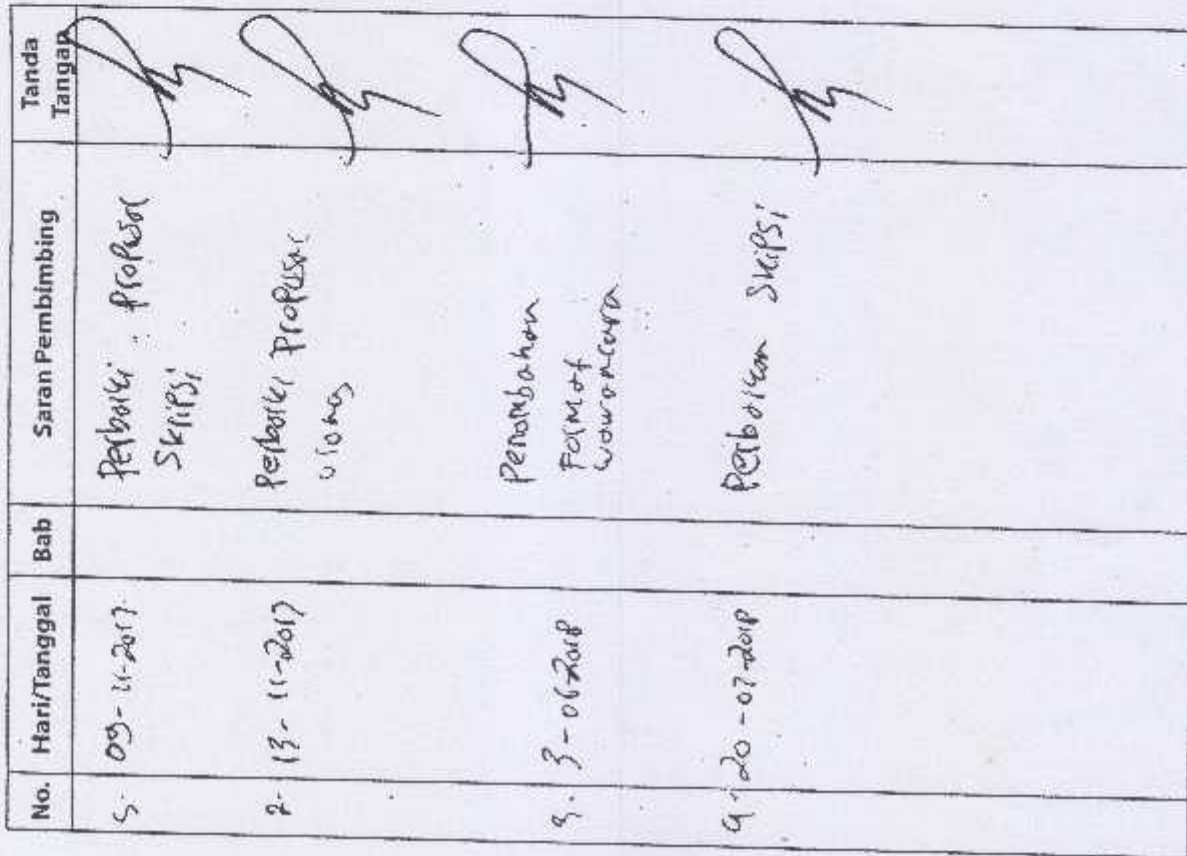 No. Hari/Tanggal Bab Saran Pembimbing Tanda
Tangan
09-11-2017 Perbaiki proposal
Skripsi
2. 13-11-2017 Perbaiki Proposal
ulang
3. 3-06-2018 Penambahan
Format
wawancara
20-07-2018 Perbaikan Skripsi